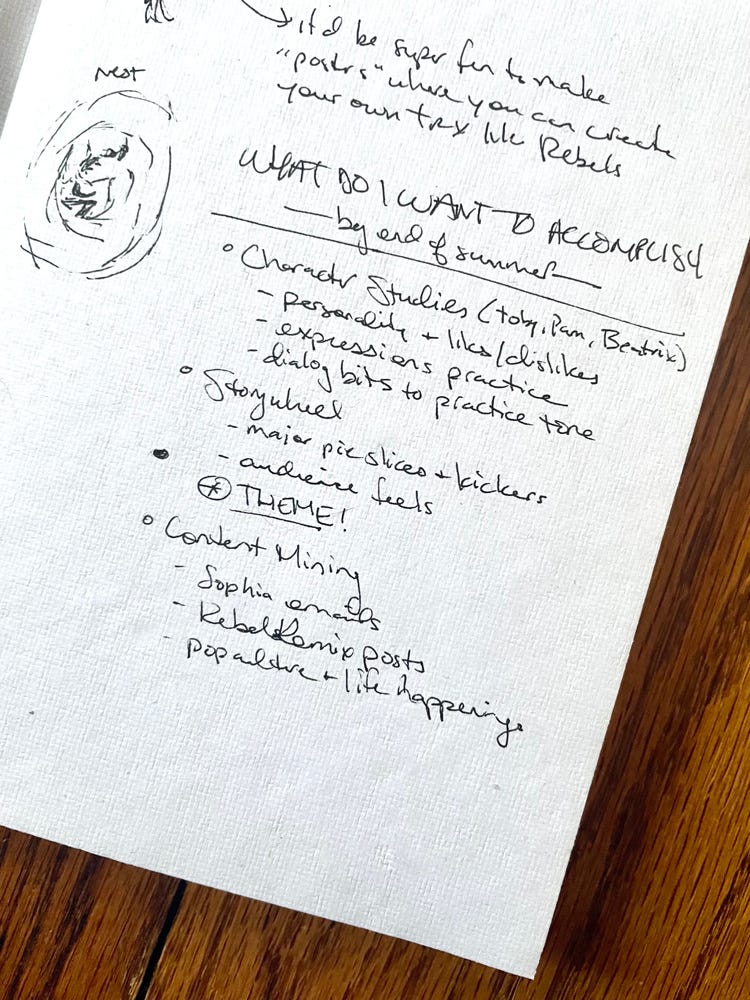 it'd be super fun to make
"posters" where you can create
your own txt like Rebels
Nest
WHAT DO I WANT TO ACCOMPLISH
— by end of summer —
○ Character Studies (Toby, Pam, Beatrix)
- personality + likes/dislikes
- expressions practice
- dialog bits to practice tone
○ Storywheel
- major pie slices + kickers
- audience feels
* THEME!
○ Content Mining
- Sophia emails
- RebelRemix posts
- pop culture + life happenings